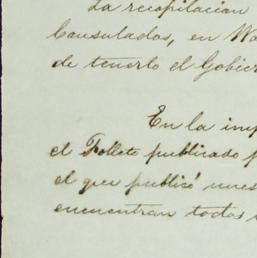 La recopilacion
Consulados, en Wa
de tenerlo el Gobier
En la imp
el Folleto publicado p
el que publicó nues
encuentran todos